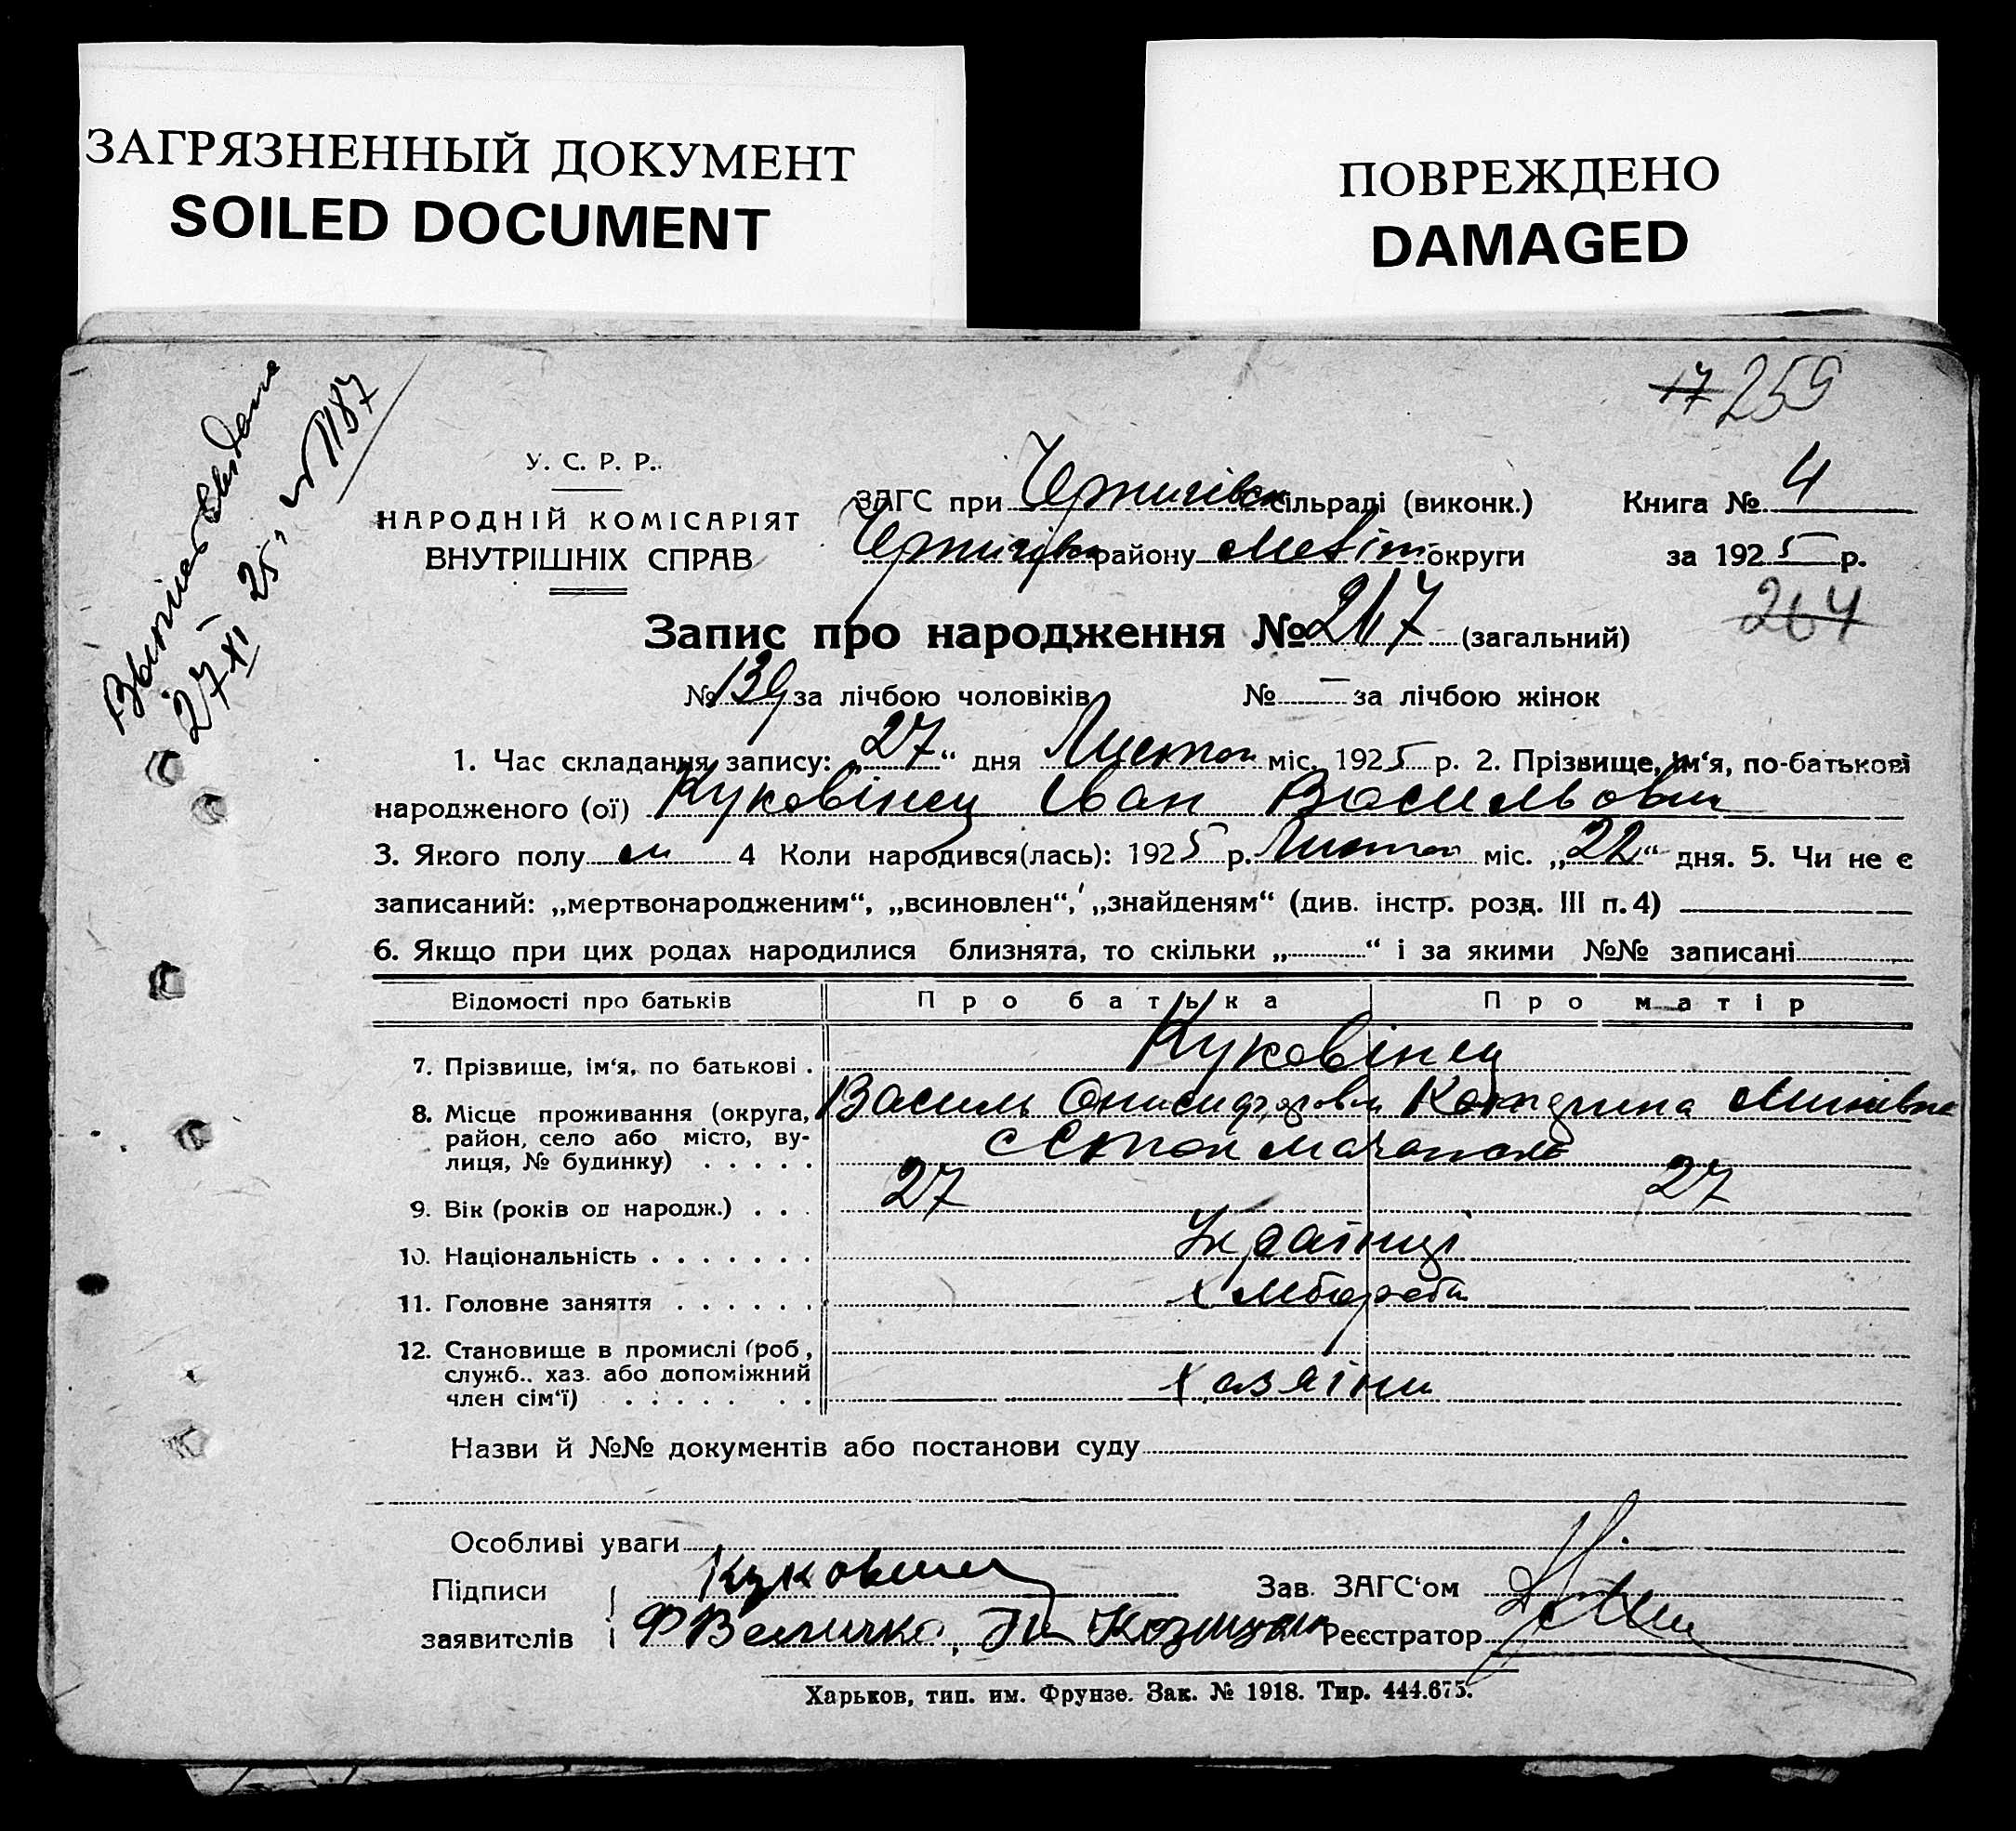 ЗАГРЯЗНЕННЫЙ ДОКУМЕНТ
SOILED DOCUMENT
ПОВРЕЖДЕНО
DAMAGED
17 259
27 XI 25, № 1187
У. С. Р. Р.
НАРОДНІЙ КОМІСАРІЯТ
ВНУТРІШНІХ СПРАВ
ЗАГС при Чернигівск сільраді (виконк.) Книга № 4
району Меліт округи за 1925 р.
264
Запис про народження № 217 (загальний)
№ 139 за лічбою чоловіків № — за лічбою жінок
1. Час складання запису: „27“ дня Листоп міс. 1925 р. 2. Прізвище, ім‘я, по-батькові
народженого (ої) Куковінец Іван Васильович
3. Якого полу м 4 Коли народився(лась): 1925 р. Листоп міс. „22“ дня. 5. Чи не є
записаний: „мертвонародженим“, „всиновлен“, „знайденям“ (див. інстр. розд. III п. 4)
6. Якщо при цих родах народилися близнята, то скільки „ “ і за якими №№ записані
Відомості про батьків Про батька Про матір
7. Прізвище, ім‘я, по батькові . Куковінец
8. Місце проживання (округа, Василь Катерина Минівна
район, село або місто, ву-
лиця, № будинку) . . . . .
9. Вік (років од народж.) . . . 27 27
10. Національність . . . . . . . Українці
11. Головне заняття . . . . . . хліборобы
12. Становище в промислі (роб,
служб.. хаз. або допоміжний
член сім‘ї) . . . . . . . хазяіни
Назви й №№ документів або постанови суду
Особливі уваги
Підписи Куковинец Зав. ЗАГС‘ом
заявителів Ф Величко, Реєстратор
Харьков, тип. им. Фрунзе. Зак. № 1918. Тир. 444.675.